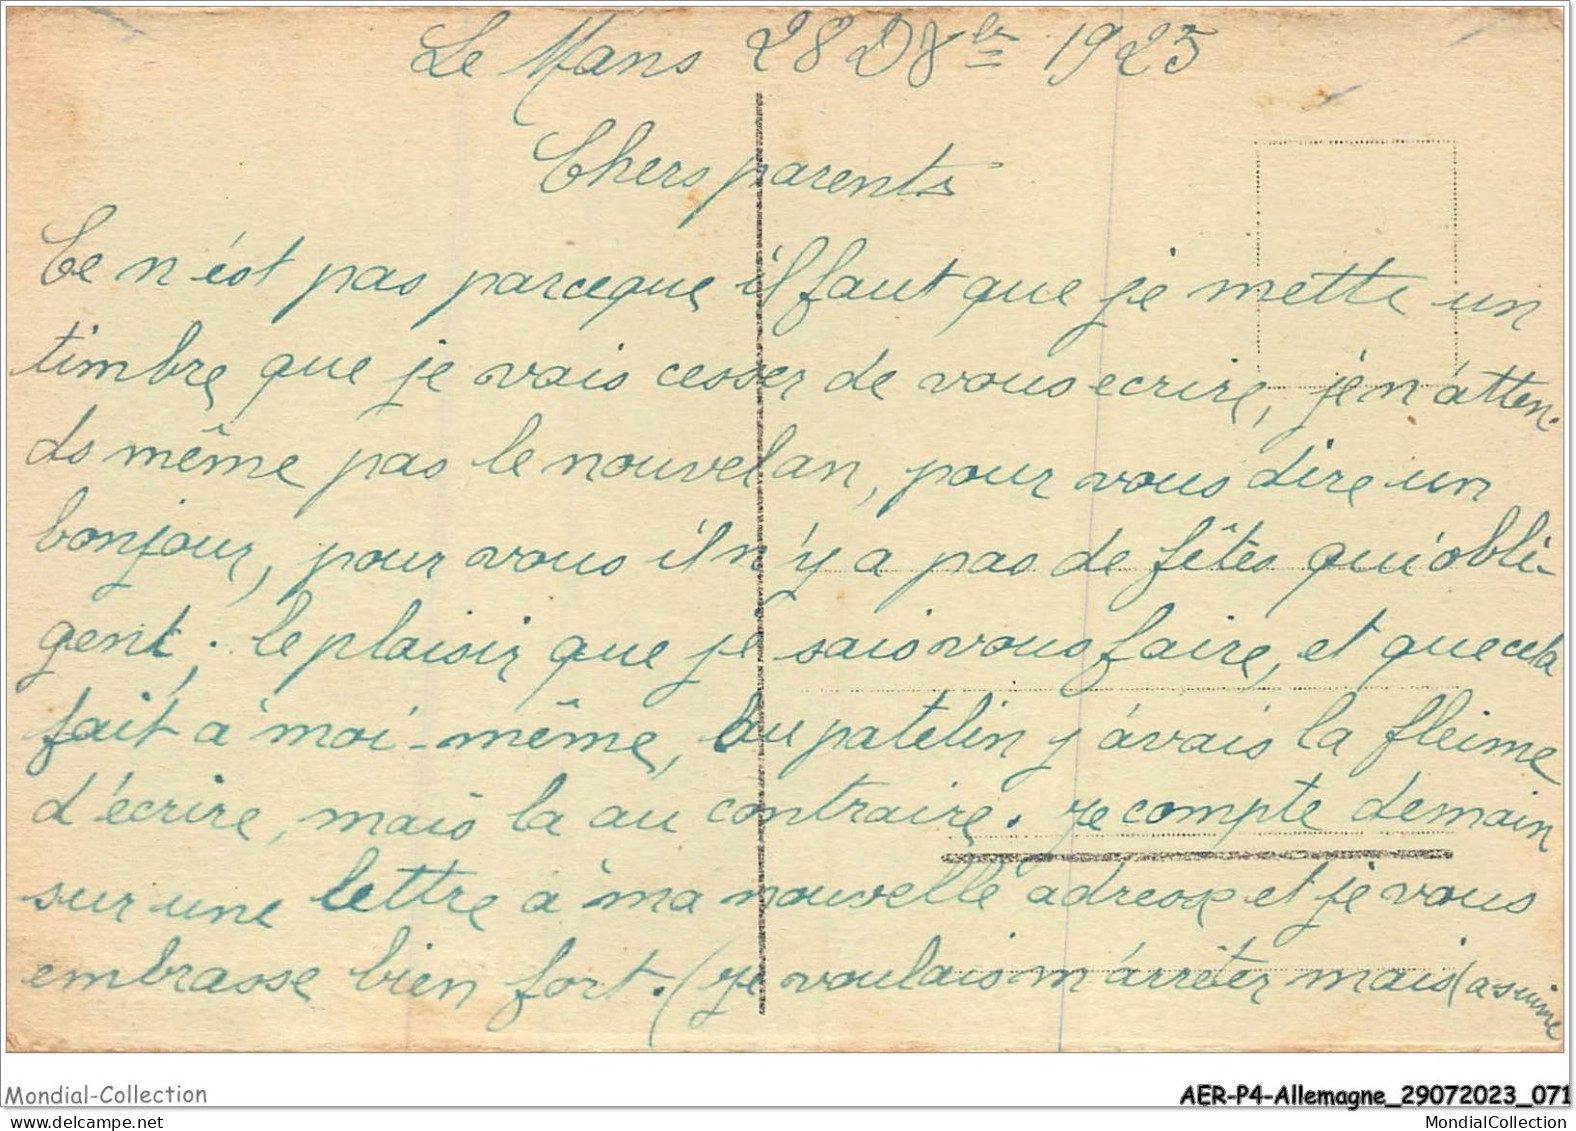 Le Mans 28 D8bre 1925
Chers parents
Ce n'est pas parceque il faut que je mette un
timbre que je vais cesser de vous ecrire, je n'atten-
ds même pas le nouvel an, pour vous dire un
bonjour, pour vous il n'y a pas de fêtes qui obli-
gent, le plaisir que je sais vous faire, et que cela
fait à moi-même, Au patelin j'avais la fleime
d'écrire, mais la au contraire. Je compte demain
sur une lettre à ma nouvelle adresse et je vous
embrasse bien fort. (Je voulais m'arrêter mais (a suivre
Mondial-Collection
AER-P4-Allemagne_29072023_071
MondialCollection